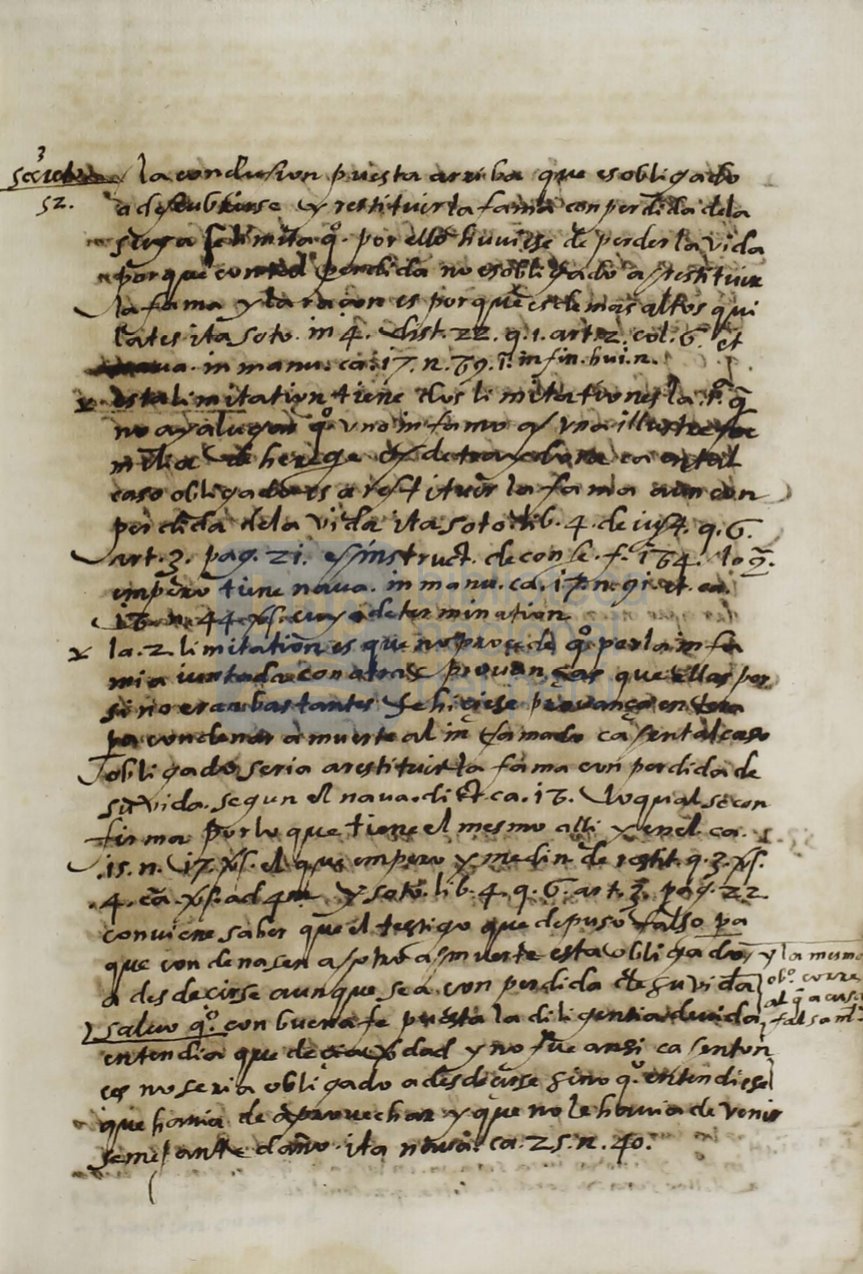 3
52.
la conclusion puesta arriba que es obligado
a descubrirse y restituir la fama con perdida dela
suya se limita q̊. por ello huviese de perder la vida
porque con tal perdida no es obligado a restituir
la fama y la raçon es porque es de mas altos qui
lates ita soto. in 4. dist. 22. q. 1. art. 2. col. 6. et
in manu. ca. 17. n. 89. in fin. hui. n.
esta limitation tiene dos limitationes la. 1ª. q̄
no aya lugar q̊ uno infamo a una illustre fa
milia de herege ca en tal
caso obligado es a restituir la fama aun con
perdida dela vida ita soto lib. 4. de iust. q. 6.
art. 3. pag. 21. instruct. de con se. f. 164. lo q̄.
empero tiene nava. in manu. ca. 17. n. 91. et. ca.
18. n. 44. cuya determination
la. 2. limitation es que no procede q̊ por la infa
mia iuntada con otras provanças que ellas por
si no eran bastantes se hiciese provança entera
pa condenar a muerte al infamado ca en tal caso
obligado seria a restituir la fama con perdida de
su vida. segun el nava. dict. ca. 18. lo qual se con
firma por lo que tiene el mesmo alli y en el. ca.
.15. n. 17. el que empero y medin. de restit. q. 3.
.4. cā. ad 4m y soto. lib. 4. q. 6. art. 3. pag. 22
conviene saber que el testigo que depuso falso pa
que condenasen a otro a muerte esta obligado
a desdecirse aunque sea con perdida de su vida
y la mism
obº. corre
al q̄ acusa
falsamte.
salvo q̊. con buena fe puesta la diligentia devida
entendia que decia vdad y no fue ansi ca enton
ces no seria obligado a desdecirse sino q̊. entendiese
que havia de aprovechar y que no le havia de venir
semejante daño. ita nava. ca. 25. n. 40.